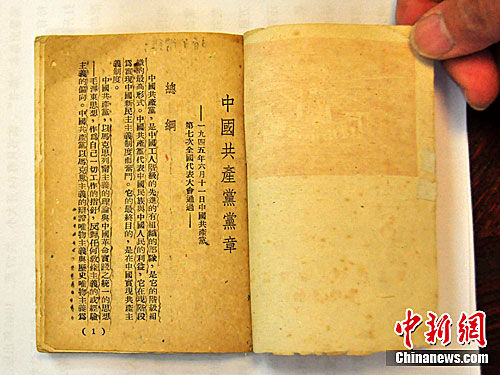 中國共產黨黨章
——一九四五年六月十一日中國共產黨
第七次全國代表大會通過——
總綱
中國共產黨,是中國工人階級的先進的有組織的部隊,是它的階級組
織的最高形式。中國共產黨代表中國民族與中國人民的利益。它在現階段
爲實現中國新民主主義制度而奮鬥。它的最終目的,是在中國實現共產主
義制度。
中國共產黨,以馬克思列寧主義的理論與中國革命實踐之統一的思想
——毛澤東思想,作爲自己一切工作的指針,反對任何敎條主義的或經驗
主義的偏向。中國共產黨以馬克思主義的辯證唯物主義與歷史唯物主義爲
(1)
中新网
Chinanews.com